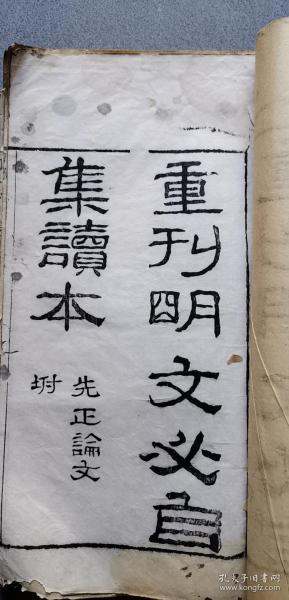 重刊明文必自
集讀本
先正論文
坿
孔夫子旧书网